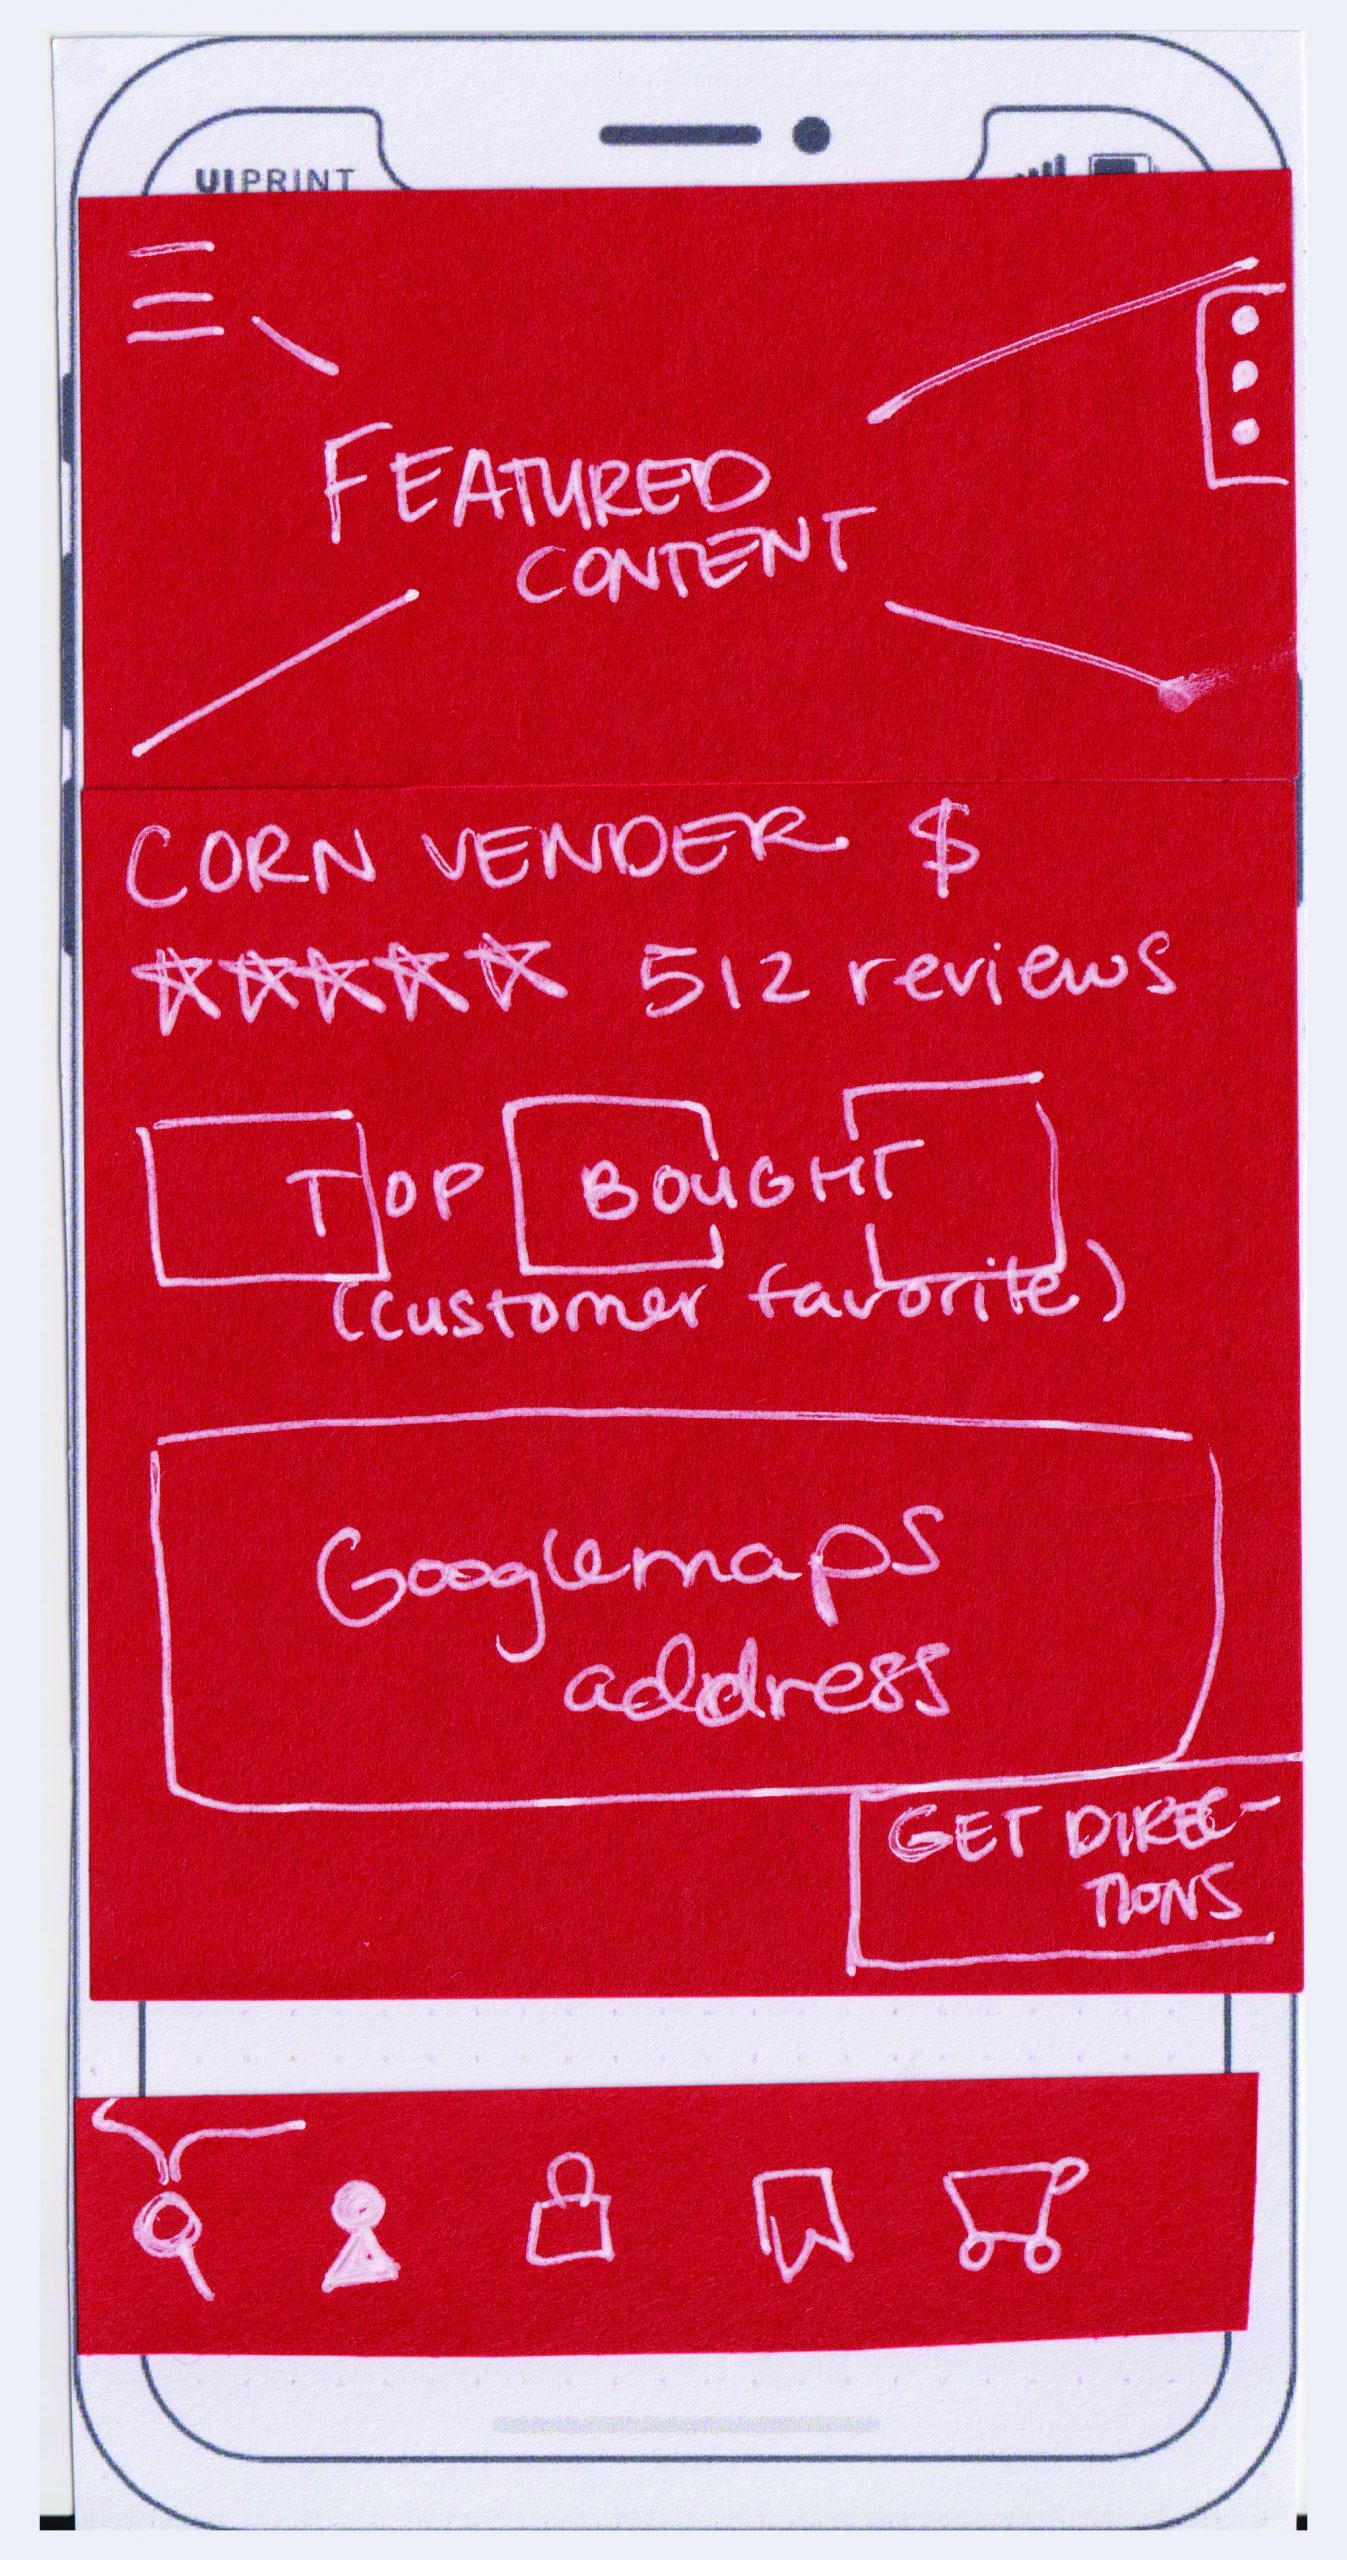 UIPRINT
FEATURED
CONTENT
CORN VENDER $
512 reviews
TOP BOUGHT
(customer favorite)
Googlemaps
address
GET DIREC-
TIONS